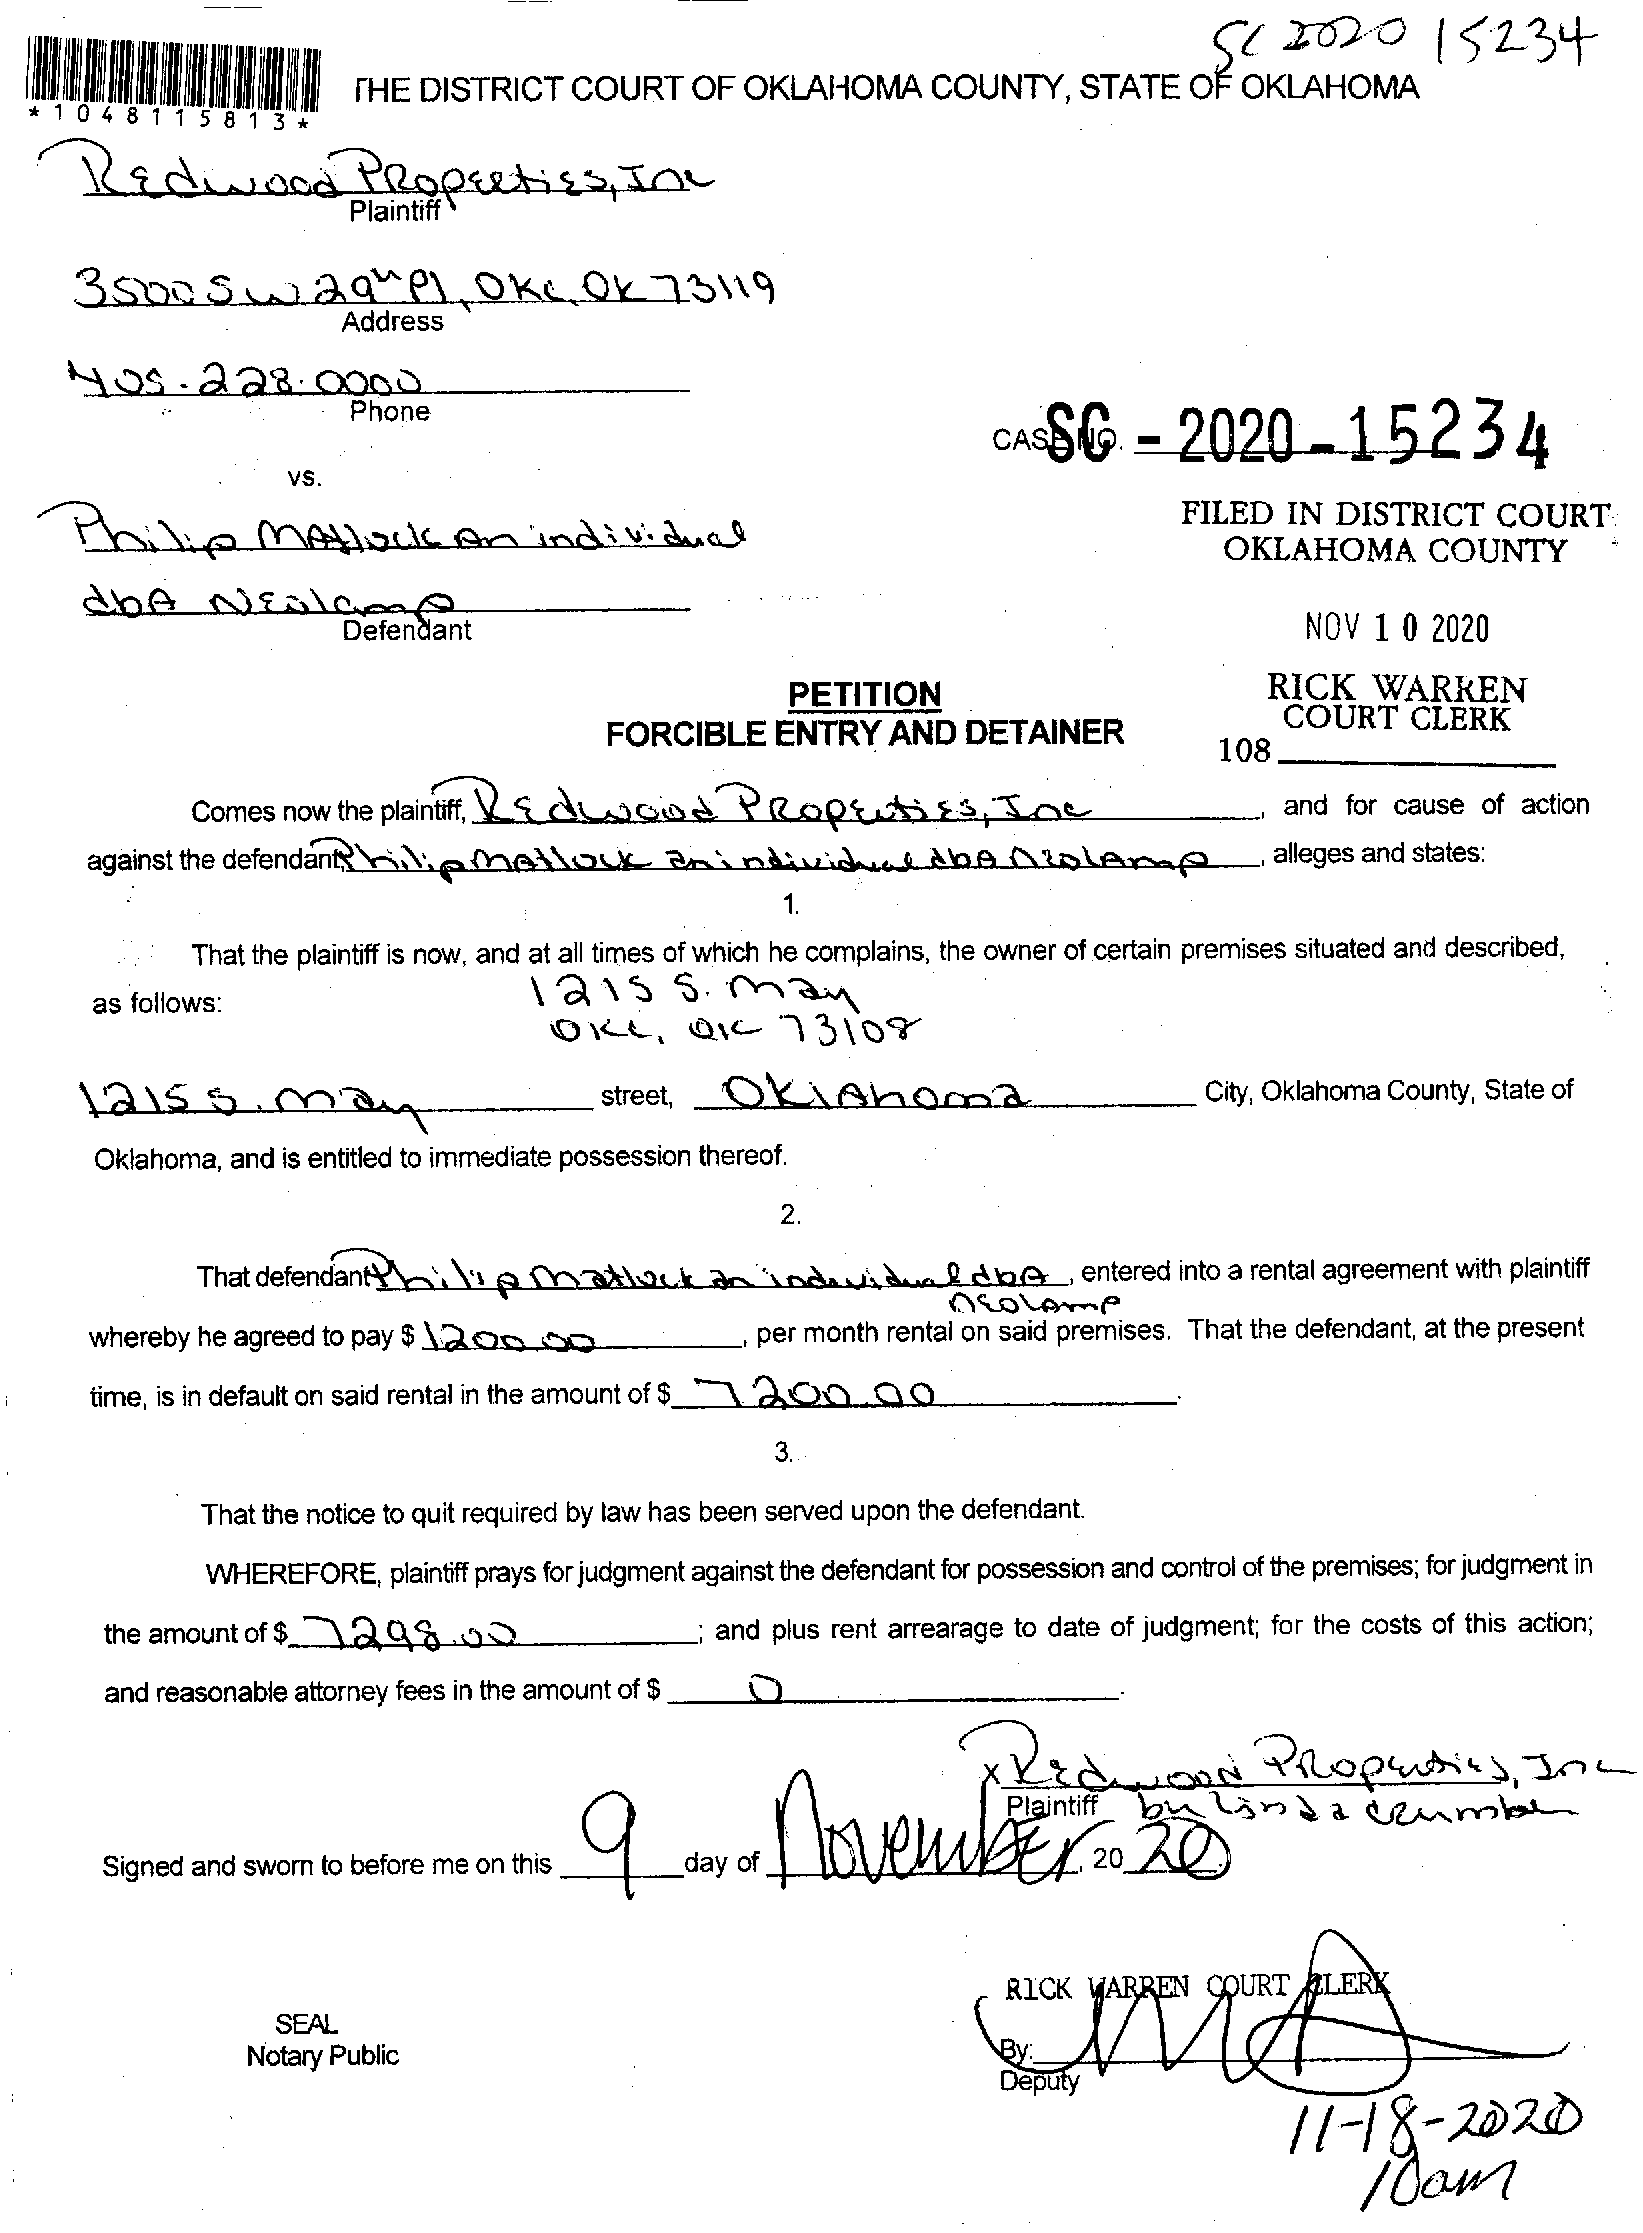 SC 2020 15234
THE DISTRICT COURT OF OKLAHOMA COUNTY, STATE OF OKLAHOMA
*1048115813*
Redwood Properties, Inc
Plaintiff
3500 SW 29th Pl, OKC, OK 73119
Address
405-228-0000
Phone
CASE NO. SC - 2020 - 15234
vs.
FILED IN DISTRICT COURT
OKLAHOMA COUNTY
Philip Matlock an individual
dbA Neolamp
Defendant
NOV 10 2020
PETITION
FORCIBLE ENTRY AND DETAINER
RICK WARREN
COURT CLERK
108
Comes now the plaintiff, Redwood Properties, Inc, and for cause of action
against the defendant, Philip Matlock an individual dbA Neolamp, alleges and states:
1.
That the plaintiff is now, and at all times of which he complains, the owner of certain premises situated and described,
as follows: 1215 S. May
OKC, OK 73108
1215 S. May street, Oklahoma City, Oklahoma County, State of
Oklahoma, and is entitled to immediate possession thereof.
2.
That defendant Philip Matlock an individual dbA, entered into a rental agreement with plaintiff
Neolamp
whereby he agreed to pay $ 1200.00, per month rental on said premises. That the defendant, at the present
time, is in default on said rental in the amount of $ 7200.00.
3.
That the notice to quit required by law has been served upon the defendant.
WHEREFORE, plaintiff prays for judgment against the defendant for possession and control of the premises; for judgment in
the amount of $ 7298.00; and plus rent arrearage to date of judgment; for the costs of this action;
and reasonable attorney fees in the amount of $ 0.
x Redwood Properties, Inc
Plaintiff by Linda Crumber
Signed and sworn to before me on this 9 day of November, 20 20
RICK WARREN COURT CLERK
SEAL
Notary Public
By:
Deputy
11-18-2020
10am